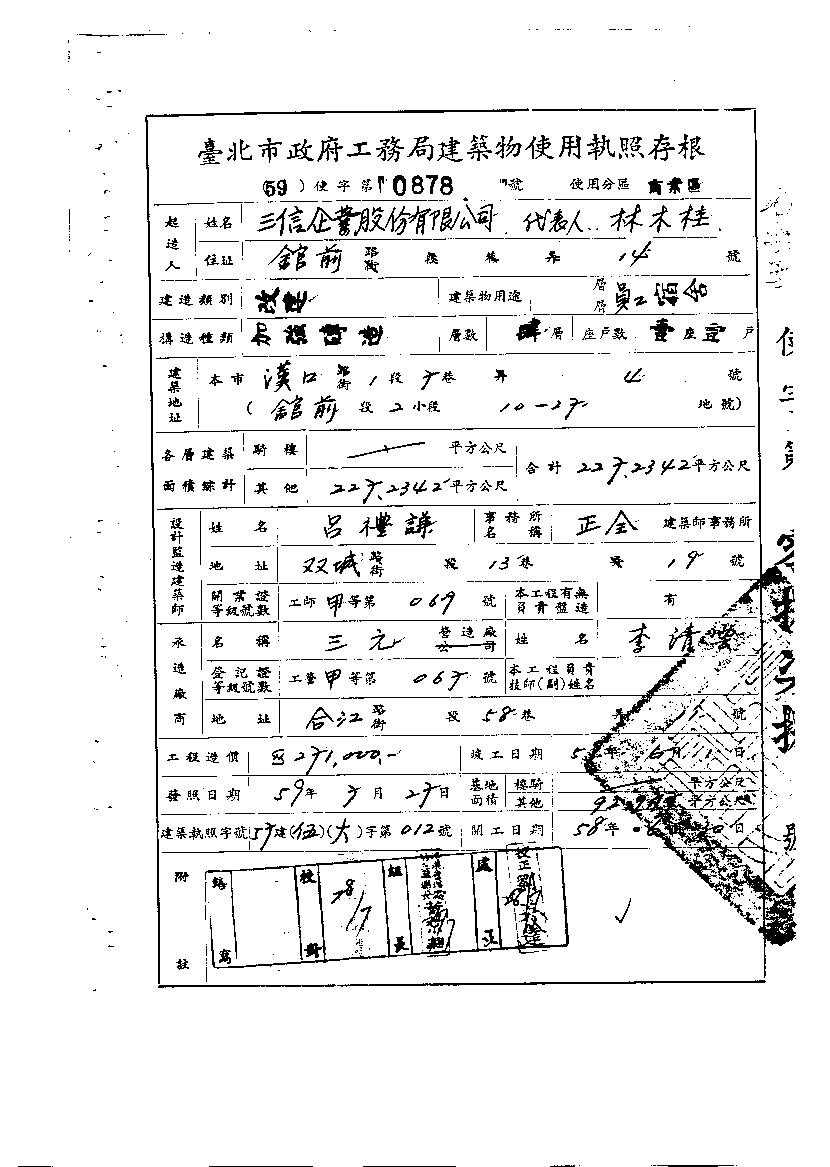 臺北市政府工務局建築物使用執照存根
(59)使字第0878號 使用分區 商業區
起造人 姓名 三信企業股份有限公司 代表人 林木桂
住址 館前 路街 段 巷 弄 14 號
建造類別 改建 建築物用途 層層 員工宿舍
構造種類 加強磚造 層數 肆層 座戶數 壹座壹戶
建築地址 本市 漢口 路街 1段 巷 弄 4 號
(館前 段2小段 10-27 地號)
各層建築面積綜計 騎樓 平方公尺 合計 227.2342平方公尺
其他 227.2342平方公尺
設計監造建築師 姓名 呂禮謙 事務所名稱 正全 建築師事務所
地址 双城 路街 段 13巷 弄 19 號
開業證等級號數 工師 甲等第 069 號 本工程有無負責監造 有
承造廠商 名稱 三元 營造廠公司 姓名 李清雲
登記證等級號數 工營 甲等第 067 號 本工程負責技師(副)姓名
地址 合江 路街 段 58巷 弄 11 號
工程造價 271,000.- 竣工日期 年 6月1日
發照日期 59年 7月 27日 基地面積 樓騎 平方公尺
其他 平方公尺
建築執照字號 57建(伍)(大)字第012號 開工日期 58年 日
附註
繕寫 校對 78/7 組長 處正
使字第 號